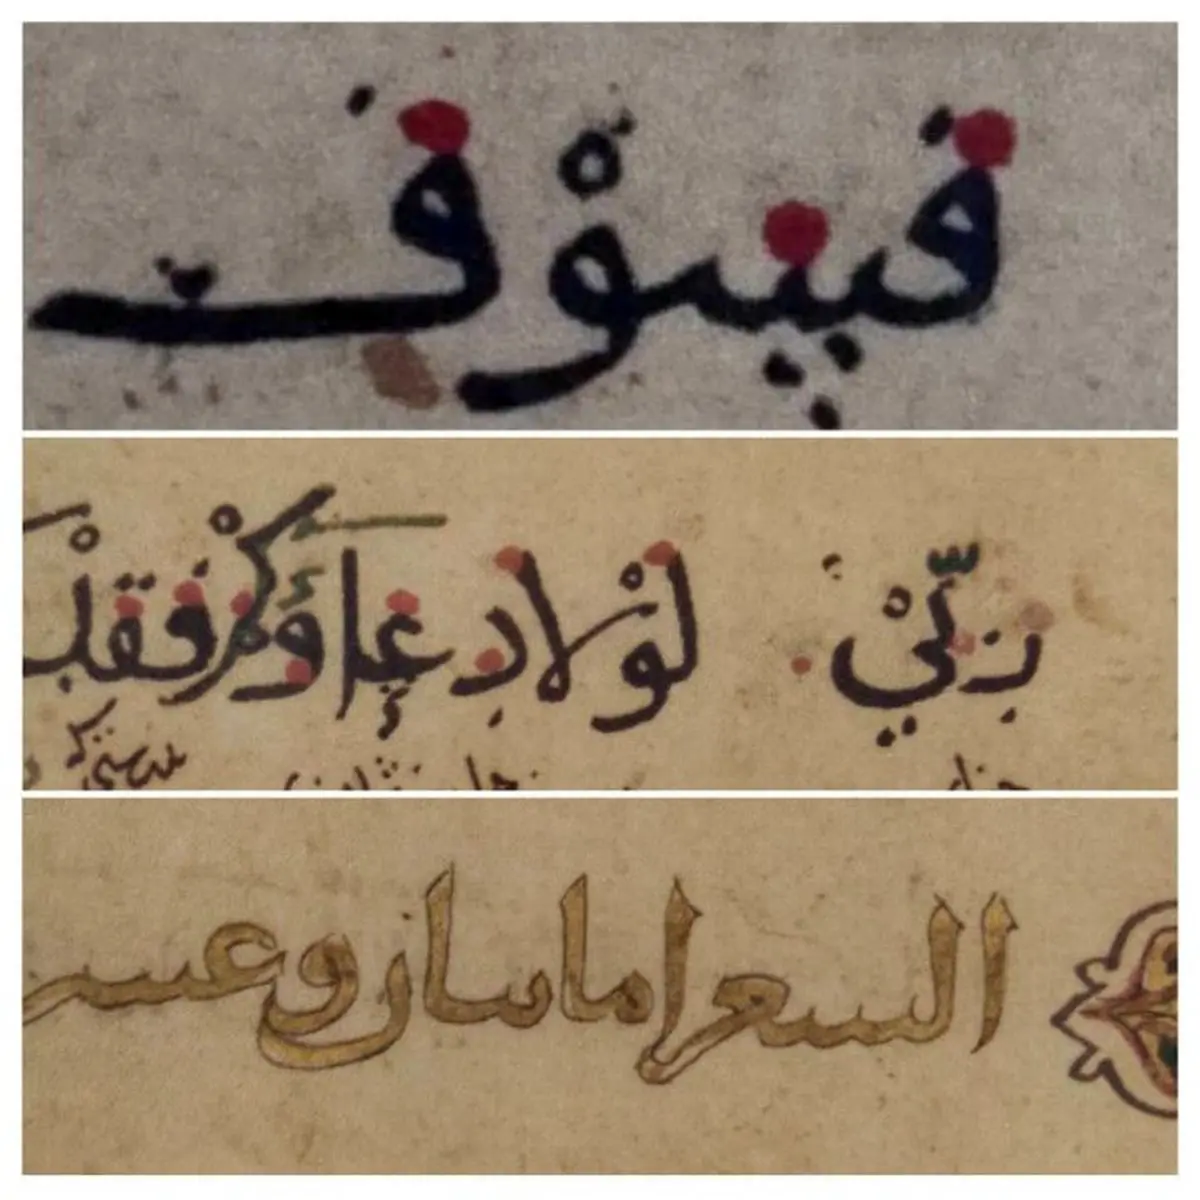 فسوْف
ربّيْ لوْلا دعاؤكمْ فقدْ
الشعرا ماىتان وعشر